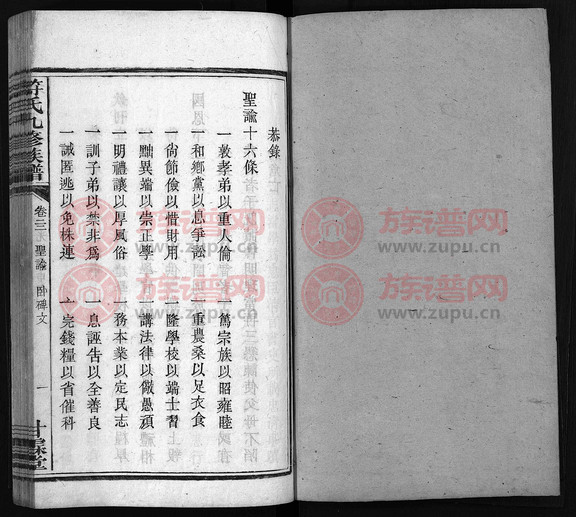 恭錄
聖諭十六條
一敦孝弟以重人倫 一篤宗族以昭雍睦
一和鄉黨以息爭訟 一重農桑以足衣食
一尙節儉以惜財用 一隆學校以端士習
一黜異端以崇正學 一講法律以儆愚頑
一明禮讓以厚風俗 一務本業以定民志
一訓子弟以禁非為 一息誣告以全善良
一誡匿逃以免株連 一完錢糧以省催科
符氏九修族譜
卷三 聖諭 臥碑文
一
族谱网
www.zupu.cn
族谱网
www.zupu.cn
族谱网
www.zupu.cn
族谱网
www.zupu.cn